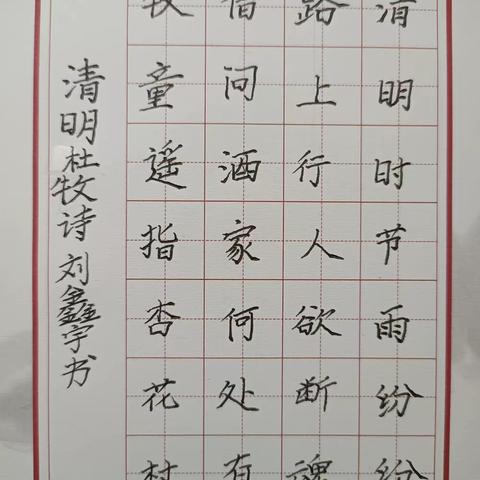 清明时节雨纷纷
路上行人欲断魂
借问酒家何处有
牧童遥指杏花村
清明杜牧诗 刘鑫宇书